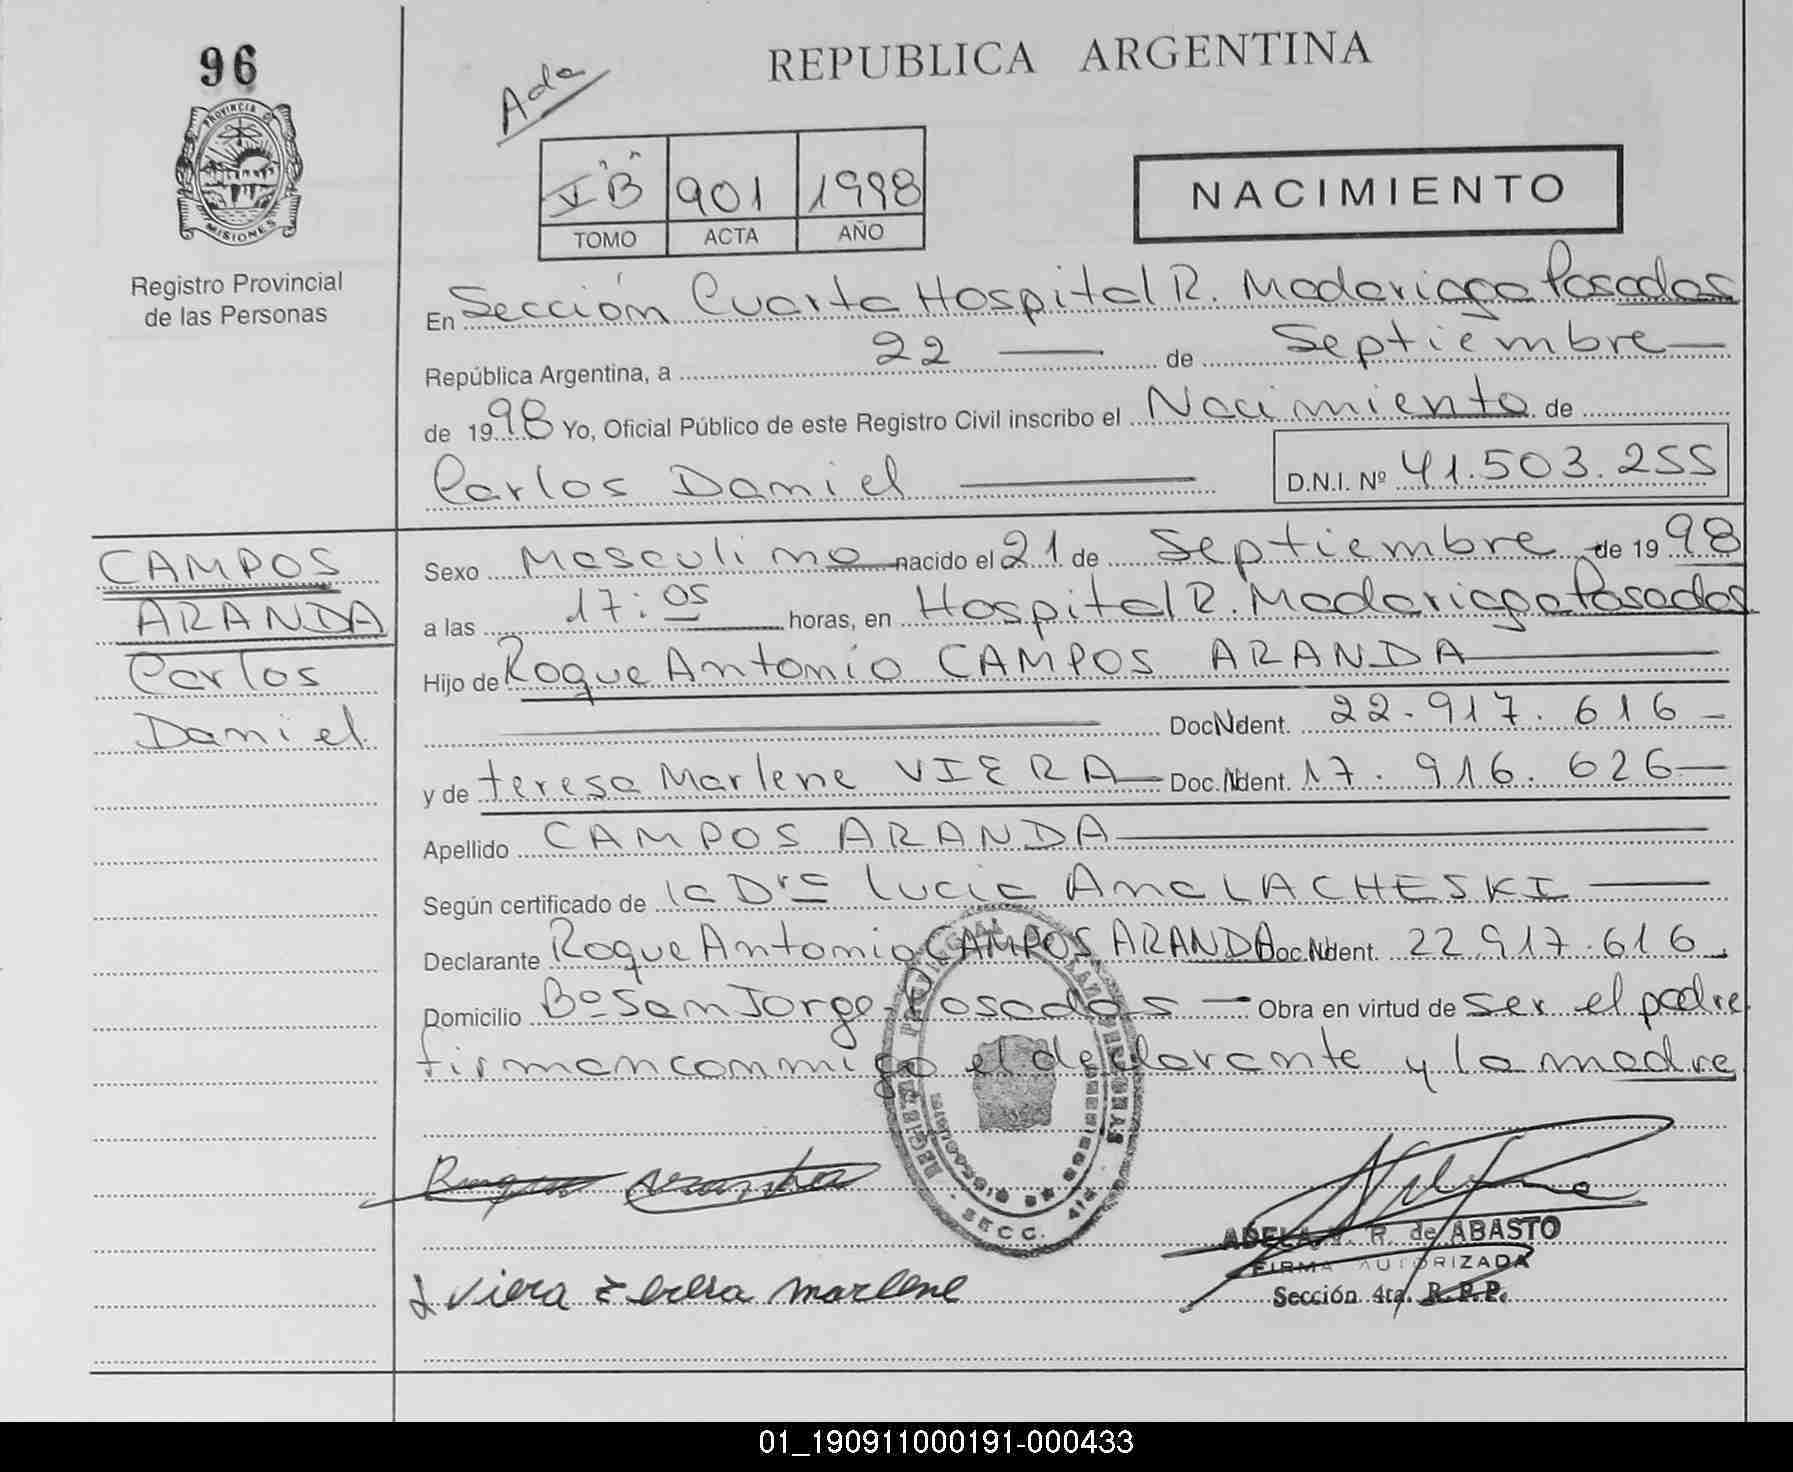 96
Ada
REPUBLICA ARGENTINA
PROVINCIA DE
MISIONES
Registro Provincial
de las Personas
"B" 901 1998
TOMO ACTA AÑO
NACIMIENTO
En Sección Cuarta Hospital R. Madariaga Posadas
República Argentina, a 22 de Septiembre
de 1998 Yo, Oficial Público de este Registro Civil inscribo el Nacimiento de
Carlos Daniel D.N.I. Nº 41.503.255
CAMPOS
ARANDA
Carlos
Daniel
Sexo Masculino nacido el 21 de Septiembre de 1998
a las 17:05 horas, en Hospital R. Madariaga Posadas
Hijo de Roque Antonio CAMPOS ARANDA
Doc. Ident. 22.917.616
y de teresa Marlene VIERA Doc. Ident. 17.916.626
Apellido CAMPOS ARANDA
Según certificado de la Dra Lucia Ana LACHESKI
Declarante Roque Antonio CAMPOS ARANDA Doc. Ident. 22.917.616
Domicilio Bº San Jorge, Posadas Obra en virtud de ser el padre
firman conmigo el declarante y la madre
SECC. 4ta
Viera teresa marlene
ADELA R. de ABASTO
FIRMA AUTORIZADA
Sección 4ta. R.P.P.
01_190911000191-000433